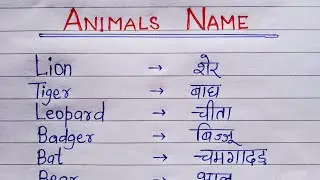 ANIMALS NAME
Lion → शेर
Tiger → बाघ
Leopard → चीता
Badger → बिज्जू
Bat → चमगादड़
Bear → भालू